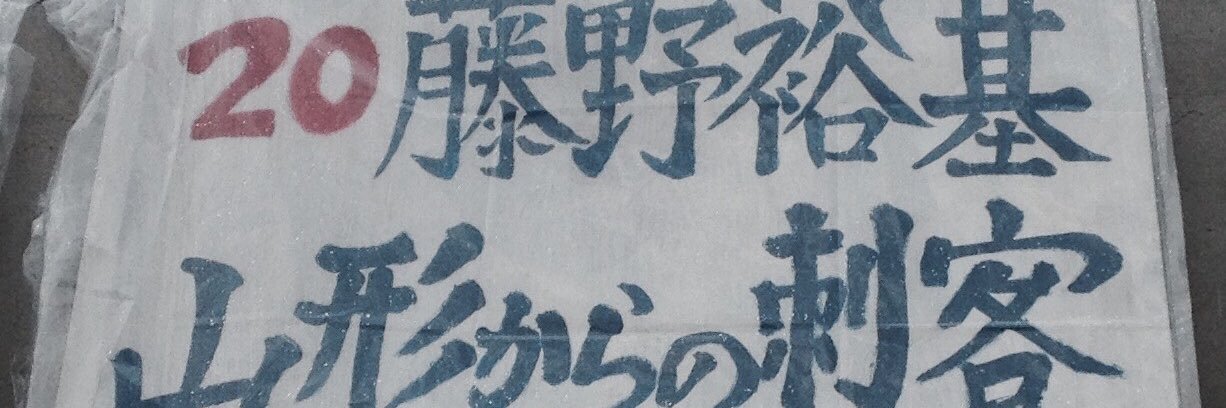 20 藤野裕基
山形からの刺客